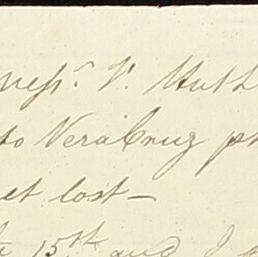 Mess.rs P. Huth
to Vera Cruz p
et lost—
15th and I